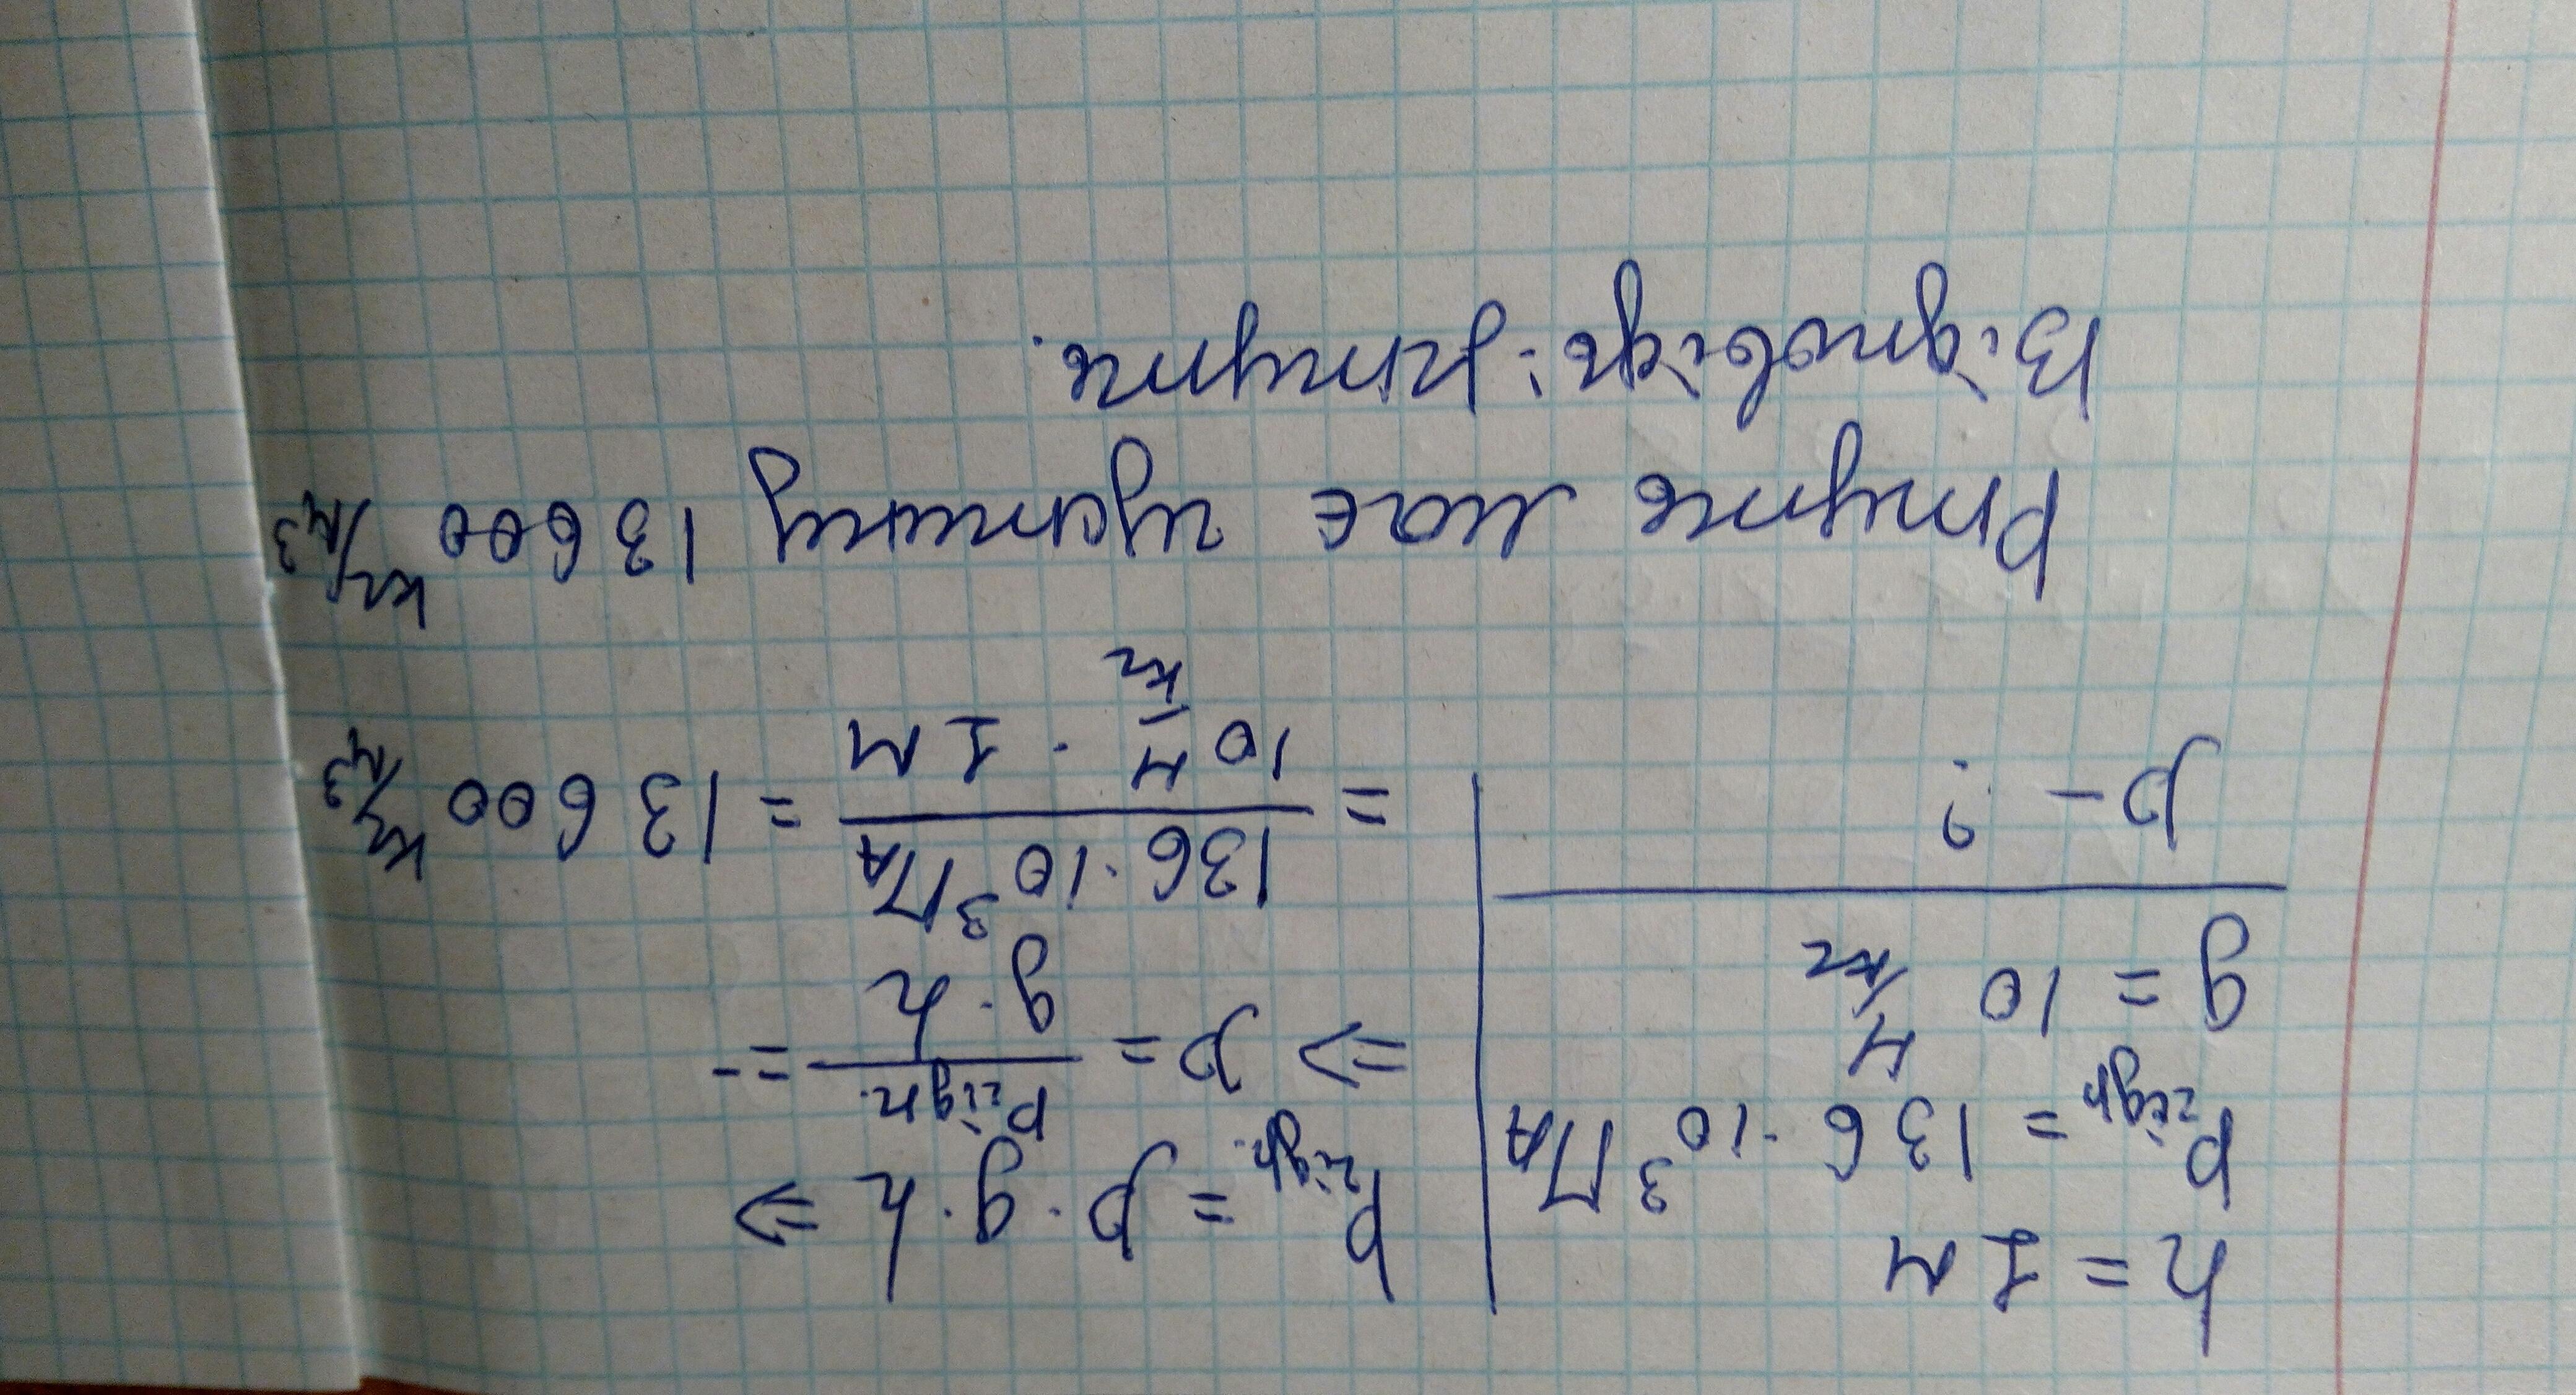 h = 1 м
pгідр = 136 · 10³ ПА
g = 10 Н/кг
ρ - ?
pгідр. = ρ · g · h =>
=> ρ = pгідр. / g · h =
= 136 · 10³ ПА / 10 Н/кг · 1 м = 13 600 кг/м³
Ртуть має густину 13 600 кг/м³
Відповідь: ртуть.